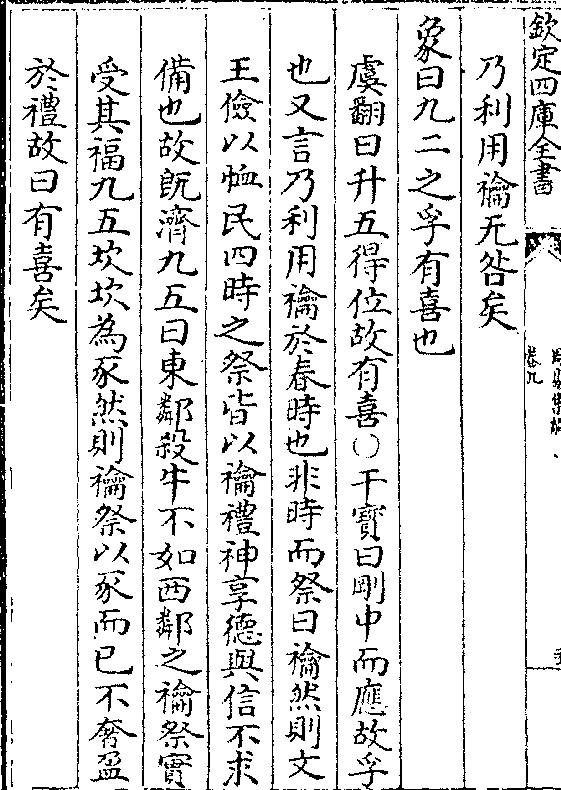 欽定四庫全書
卷九
乃利用禴无咎矣
象曰九二之孚有喜也
虞翻曰升五得位故有喜〇干寳曰剛中而應故孚
也又言乃利用禴於春時也非時而祭曰禴然則文
王儉以恤民四時之祭皆以禴禮神享德與信不求
備也故旣濟九五曰東鄰殺牛不如西鄰之禴祭實
受其福九五坎坎為豕然則禴祭以豕而已不奢盈
於禮故曰有喜矣